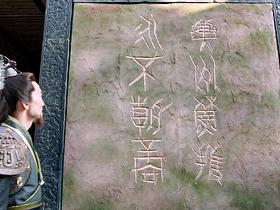 冀州蘇護
永不朝商